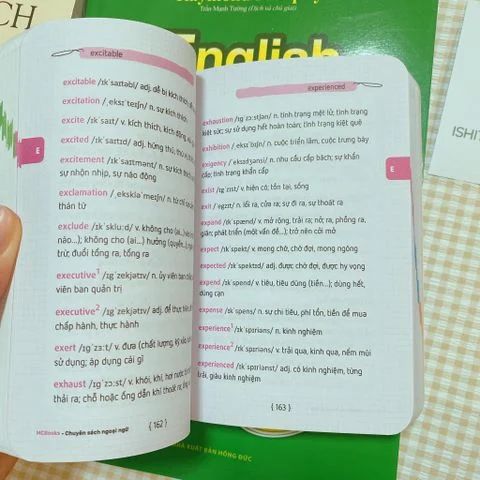 CH
Trần Mạnh Tường (Dịch và chú giải)
English
excitable
excitable /ɪkˈsaɪtəbl/ adj. dễ bị kích thích,
excitation /ˌeksɪˈteɪʃn/ n. sự kích thích
excite /ɪkˈsaɪt/ v. kích thích, kích động,
excited /ɪkˈsaɪtɪd/ adj. hứng thú,
excitement /ɪkˈsaɪtmənt/ n. sự kích thích,
sự nhộn nhịp, sự náo động
exclamation /ˌekskləˈmeɪʃn/ n. từ chỉ sự
thán từ
exclude /ɪkˈskluːd/ v. không cho (ai...)
nào...); không cho (ai...) hưởng (quyền...)
trừ; đuổi tổng ra, tống ra
executive¹ /ɪɡˈzekjətɪv/ n. ủy viên ban
viên ban quản trị
executive² /ɪɡˈzekjətɪv/ adj. để thực
chấp hành, thực hành
exert /ɪɡˈzɜːt/ v. đưa (chất lượng, kỹ xảo
sử dụng; áp dụng cái gì
exhaust /ɪɡˈzɔːst/ v. khói, khí, hơi nước
thải ra; chỗ hoặc ống dẫn khí thoát ra;
E
HCBooks - Chuyên sách ngoại ngữ
{ 162 }
experienced
exhaustion /ɪɡˈzɔːstʃən/ n. tình trạng mệt lử; tình trạng
kiệt sức; sự sử dụng hết hoàn toàn; tình trạng kiệt quệ
exhibition /ˌeksɪˈbɪʃn/ n. cuộc triển lãm, cuộc trưng bày
exigency /ˈeksɪdʒənsi/ n. nhu cầu cấp bách; sự khẩn
cấp; tình trạng khẩn cấp
exist /ɪɡˈzɪst/ v. hiện có; tồn tại, sống
exit /ˈeɡzɪt/ v. lối ra, cửa ra; sự đi ra, sự thoát ra
expand /ɪkˈspænd/ v. mở rộng, trải ra; nở ra, phồng ra,
giãn; phát triển (một vấn đề...); trở nên cởi mở
expect /ɪkˈspekt/ v. mong chờ, chờ đợi, mong ngóng
expected /ɪkˈspektɪd/ adj. được chờ đợi, được hy vọng
expend /ɪkˈspend/ v. tiêu, tiêu dùng (tiền...); dùng hết,
dùng cạn
expense /ɪkˈspens/ n. sự chi tiêu, phí tổn, tiền để mua
experience¹ /ɪkˈspɪriəns/ n. kinh nghiệm
experience² /ɪkˈspɪriəns/ v. trải qua, kinh qua, nếm mùi
experienced /ɪkˈspɪriənst/ adj. có kinh nghiệm, từng
trải, giàu kinh nghiệm
E
{ 163 }
XUẤT BẢN HỒNG ĐỨC
ISHI